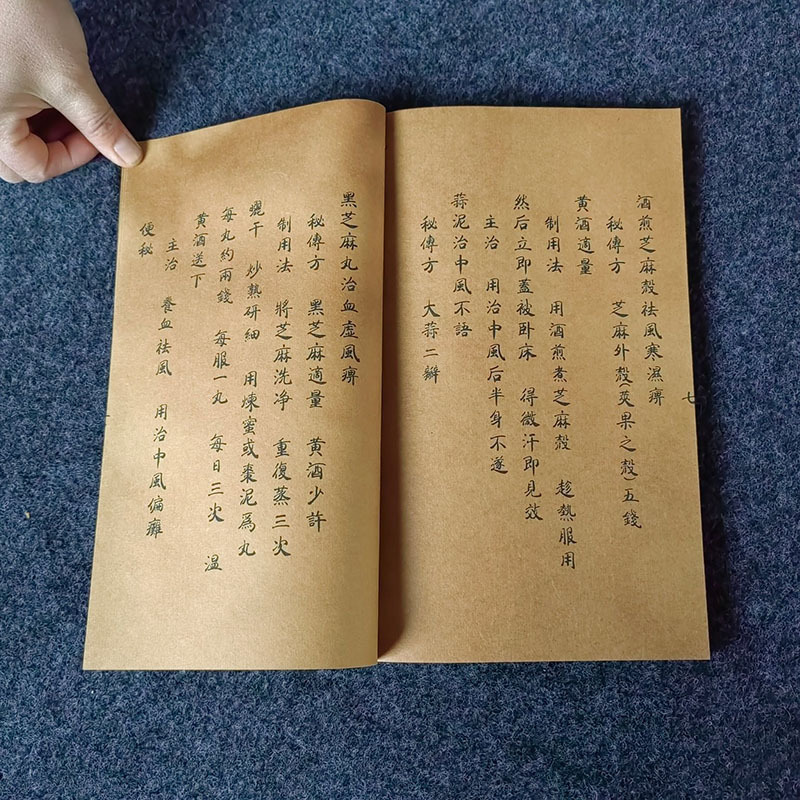 七
酒煎芝麻殼祛風寒濕痹
秘傳方 芝麻外殼(莢果之殼)五錢
黃酒適量
制用法 用酒煎煮芝麻殼 趁熱服用
然后立即蓋被卧床 得微汗即見效
主治 用治中風后半身不遂
蒜泥治中風不語
秘傳方 大蒜二瓣
黑芝麻丸治血虛風痹
秘傳方 黑芝麻適量 黃酒少許
制用法 將芝麻洗净 重復蒸三次
曬干 炒熱研細 用煉蜜或棗泥爲丸
每丸約兩錢 每服一丸 每日三次 温
黃酒送下
主治 養血祛風 用治中風偏癱
便秘